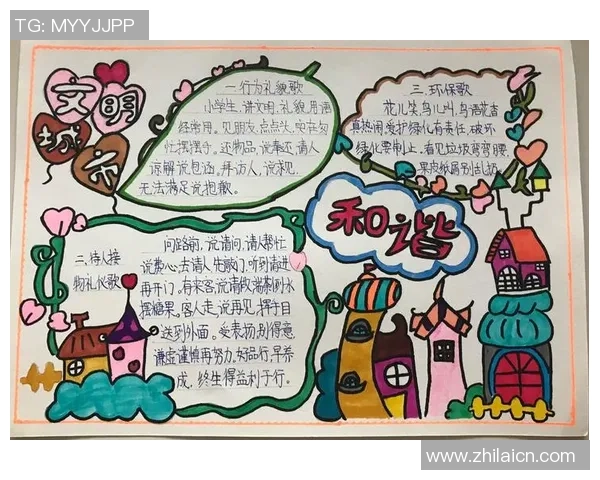 TG: MYYJJPP
文明
城市
一.行为礼貌歌
小学生,讲文明,礼貌用语
经常用。见朋友,点点头,实在匆
忙摆摆手。还物品,说奉还,请人
谅解说包涵。拜访人,说求见,
无法满足说抱歉。
三.环保歌
花儿笑,鸟儿叫,鸟语花香
真热闹,爱护绿化有责任,破坏
绿化要制止。看见垃圾弯弯腰,
果皮纸屑别乱扔。
和谐
二.待人接
物礼仪歌
问路前,说请问,请人帮忙
说费心,去请人,先敲门,听到请进
再开门,有来客,说请坐,端茶倒水
摆糖果。客人走,说再见,挥手目
送到外面。受表扬,别得意,
谦虚谨慎再努力,好品行,早养
成,终生得益利于行。
www.zhilaicn.com